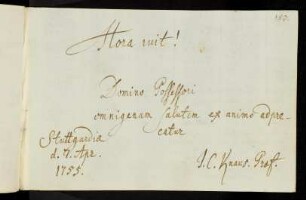 Hora ruit!
Domino Possessori
omnigenam salutem ex animo adpre-
catur
Stuttgardiae
d. 7. Apr.
1755.
J. C. Knaus. Prof.